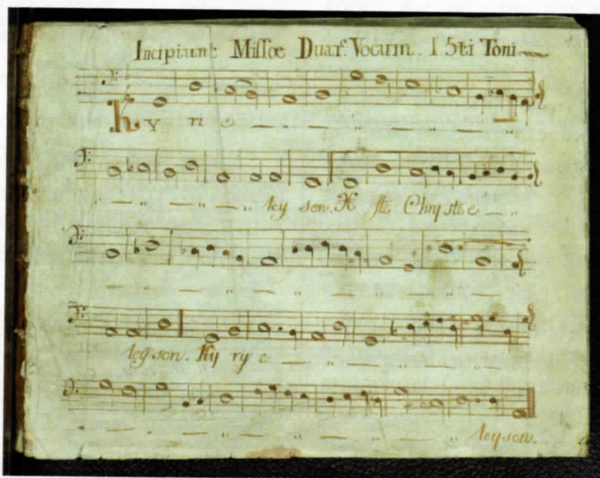 Incipiunt Missæ Duar. Vocum. I 5ti Toni
Ky ri e
ley son. X ste Chry ste e
ley son. Ky ry e
ley son.